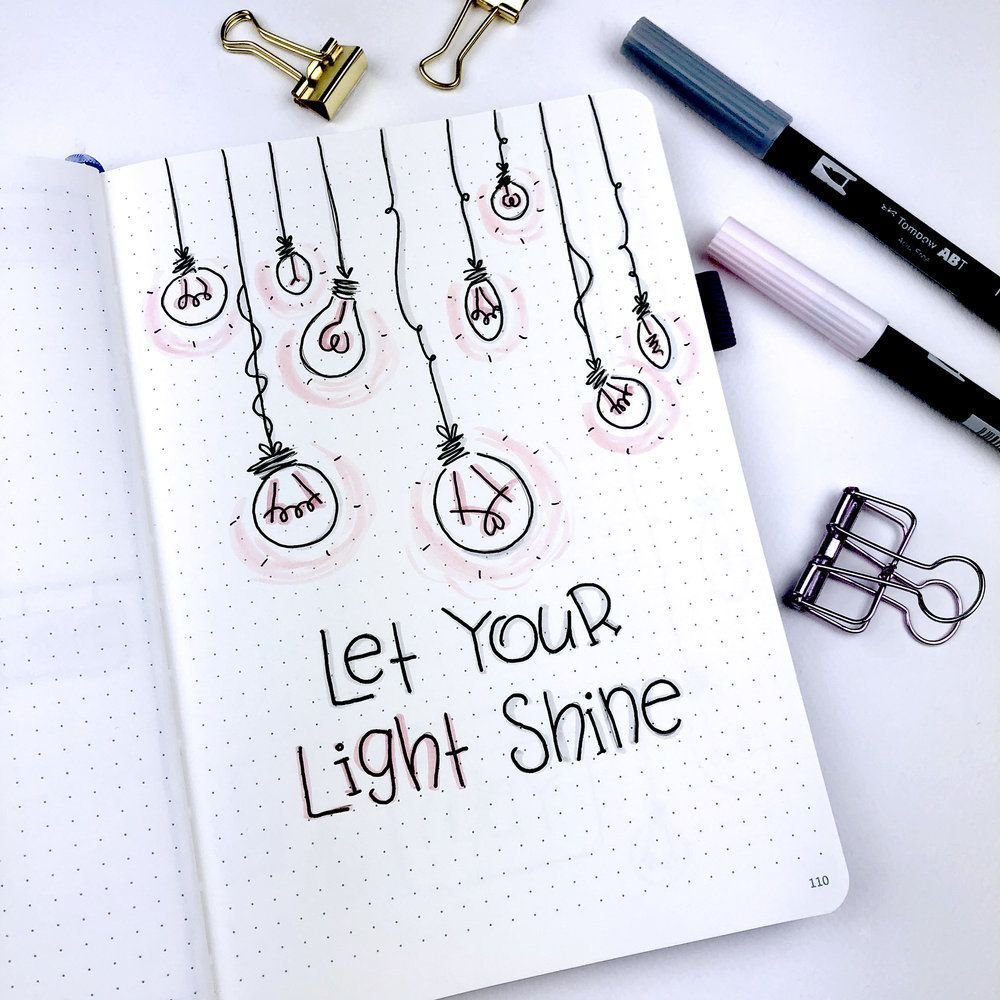 Let YOUR
Light Shine
110
Tombow ABT